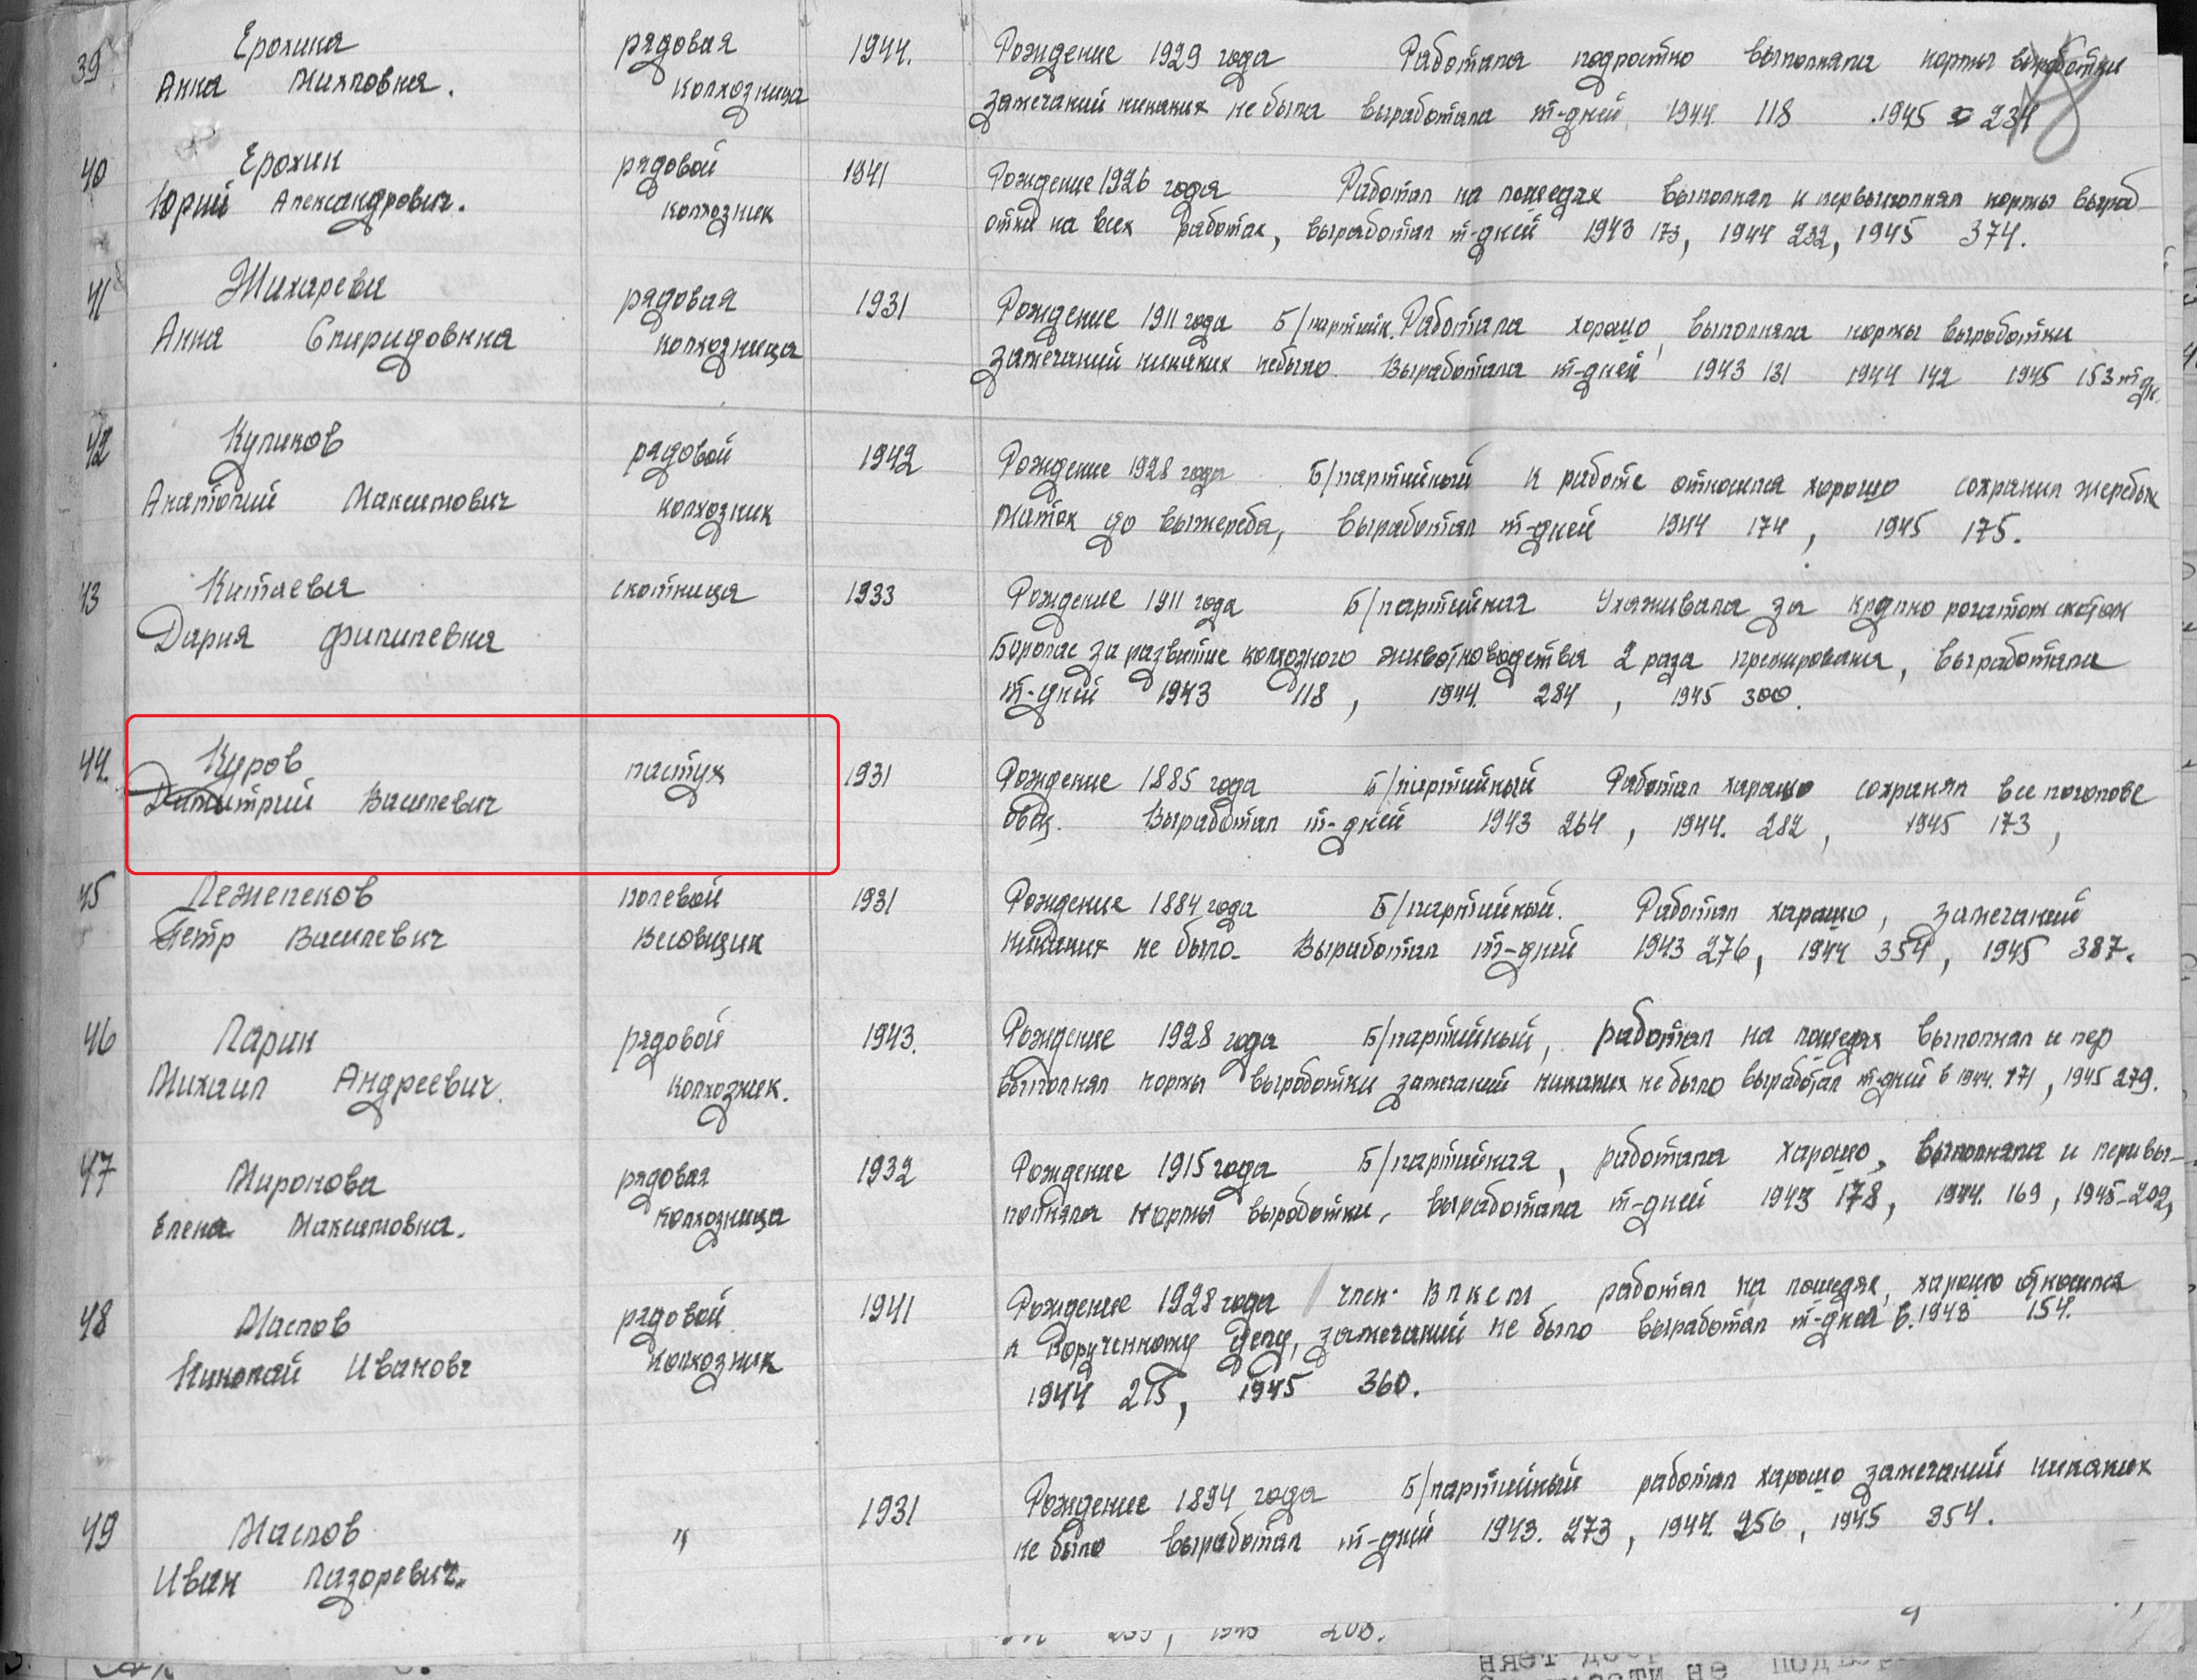 39 Ерохина рядовая 1944. Рождение 1929 года Работала подростко выполняла нормы выработки
Анна колхозница замечаний никаких не была выработала т-дней 1944 118 .1945 234
40 Ерохин рядовой 1941 Рождение 1926 года Работал на лошедях выполнял и первыполнял нормы выраб
Юрий Александрович. колхозник отки на всех работах, выработал т-дней 1943 173, 1944 232, 1945 374.
41 Жихарева рядовая 1931 Рождение 1911 года Б/партийн. Работала хорошо, выполняла нормы выработки
Анна Спиридовнна колхозница замечаний никаких небыло. Выработала т-дней 1943 131 1944 142 1945 153 т дн.
42 Куликов рядовой 1942 Рождение 1928 года Б/партийный к работе относился хорошо сохранил жеребых
Анатолий Максимович колхозник маток до выжереба, выработал т-дней 1944 174, 1945 175.
43 Китаева скотница 1933 Рождение 1911 года Б/партийная Ухаживала за крупно рогатом скотом
Дария Филипевна Боролас за развитие колхозного животноводства 2 раза премирована, выработала
т-дней 1943 118, 1944. 284, 1945 300.
44. Куров пастух 1931 Рождение 1885 года Б/партийный Работал харашо сохранял все поголове
Димитрий Василевич овец. Выработал т-дней 1943 264, 1944. 282, 1945 173,
45 Лежепеков полевой 1931 Рождение 1884 года Б/партийный. Работал харашо, замечаний
Петр Василевич весовщик никаких не было. Выработал т-дней 1943 276, 1944 354, 1945 387.
46 Ларин рядовой 1943. Рождение 1928 года Б/партийный, работал на лошедях выполнял и пер
Михаил Андреевич. колхозник. выполнял нормы выработки замечаний никаких не было выработал т-дней в 1944. 171, 1945 279.
47 Миронова рядовая 1932 Рождение 1915 года Б/партийная, работала харашо, выполняла и перевы-
Елена Максимовна. колхозница полняла нормы выработки, выработала т-дней 1943 178, 1944. 169, 1945-202,
48 Маслов рядовой 1941 Рождение 1928 года член ВЛКСМ работал на лошедях, харашо относился
Николай Ивановч колхозник к порученному делу, замечаний не было выработал т-дней в.1943 154.
1944 215, 1945 360.
49 Маслов " 1931 Рождение 1894 года Б/партийный работал харашо замечаний никаких
Иван Лазоревич. не было выработал т-дней 1943. 273, 1944. 256, 1945 354.